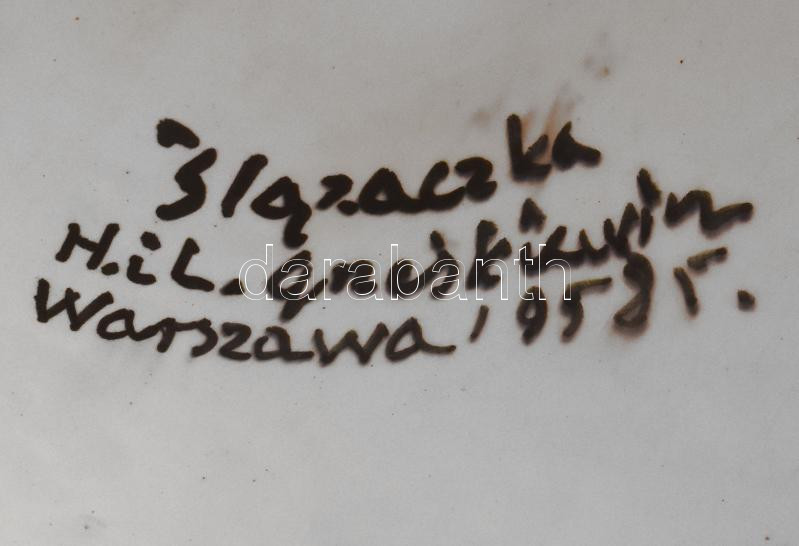 Ślązaczka
H. i L.
Warszawa, 1958 r.
darabanth